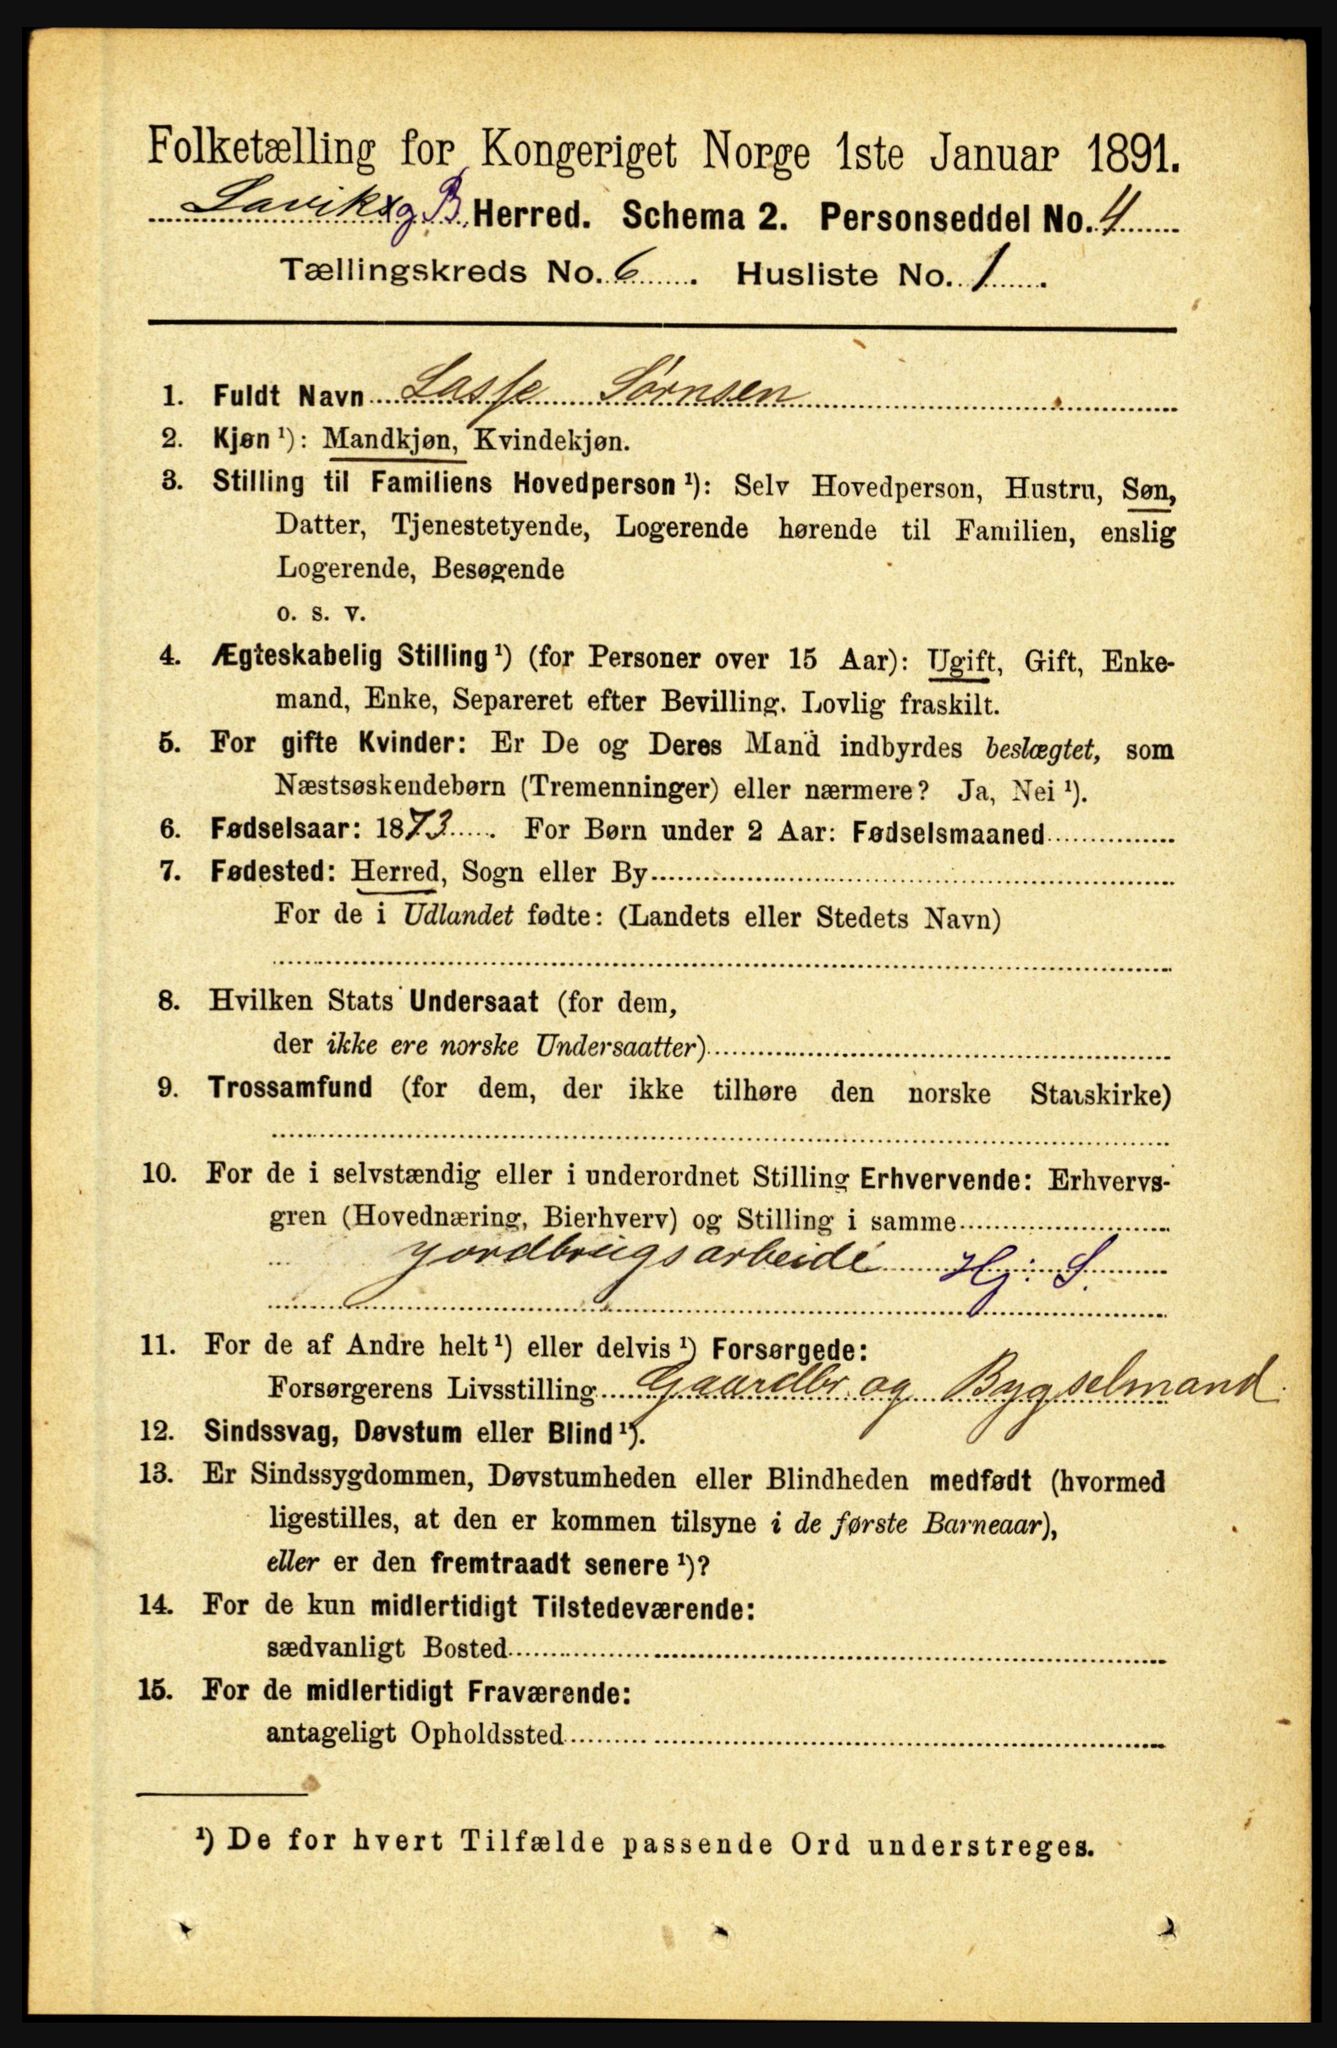 Folketælling for Kongeriget Norge 1ste Januar 1891.
Laviks og B. Herred. Schema 2. Personseddel No. 4
Tællingskreds No. 6. Husliste No. 1.
1. Fuldt Navn Lasse Sørnsen
2. Kjøn ¹): Mandkjøn, Kvindekjøn.
3. Stilling til Familiens Hovedperson ¹): Selv Hovedperson, Hustru, Søn,
Datter, Tjenestetyende, Logerende hørende til Familien, enslig
Logerende, Besøgende
o. s. v.
4. Ægteskabelig Stilling ¹) (for Personer over 15 Aar): Ugift, Gift, Enke-
mand, Enke, Separeret efter Bevilling. Lovlig fraskilt.
5. For gifte Kvinder: Er De og Deres Mand indbyrdes beslægtet, som
Næstsøskendebørn (Tremenninger) eller nærmere? Ja, Nei ¹).
6. Fødselsaar: 1873. For Børn under 2 Aar: Fødselsmaaned
7. Fødested: Herred, Sogn eller By
For de i Udlandet fødte: (Landets eller Stedets Navn)
8. Hvilken Stats Undersaat (for dem,
der ikke ere norske Undersaatter)
9. Trossamfund (for dem, der ikke tilhøre den norske Statskirke)
10. For de i selvstændig eller i underordnet Stilling Erhvervende: Erhvervs-
gren (Hovednæring, Bierhverv) og Stilling i samme
jordbrugsarbeide Hj: S.
11. For de af Andre helt ¹) eller delvis ¹) Forsørgede:
Forsørgerens Livsstilling Gaardbr og Bygselmand.
12. Sindssvag, Døvstum eller Blind ¹).
13. Er Sindssygdommen, Døvstumheden eller Blindheden medfødt (hvormed
ligestilles, at den er kommen tilsyne i de første Barneaar),
eller er den fremtraadt senere ¹)?
14. For de kun midlertidigt Tilstedeværende:
sædvanligt Bosted
15. For de midlertidigt Fraværende:
antageligt Opholdssted
¹) De for hvert Tilfælde passende Ord understreges.